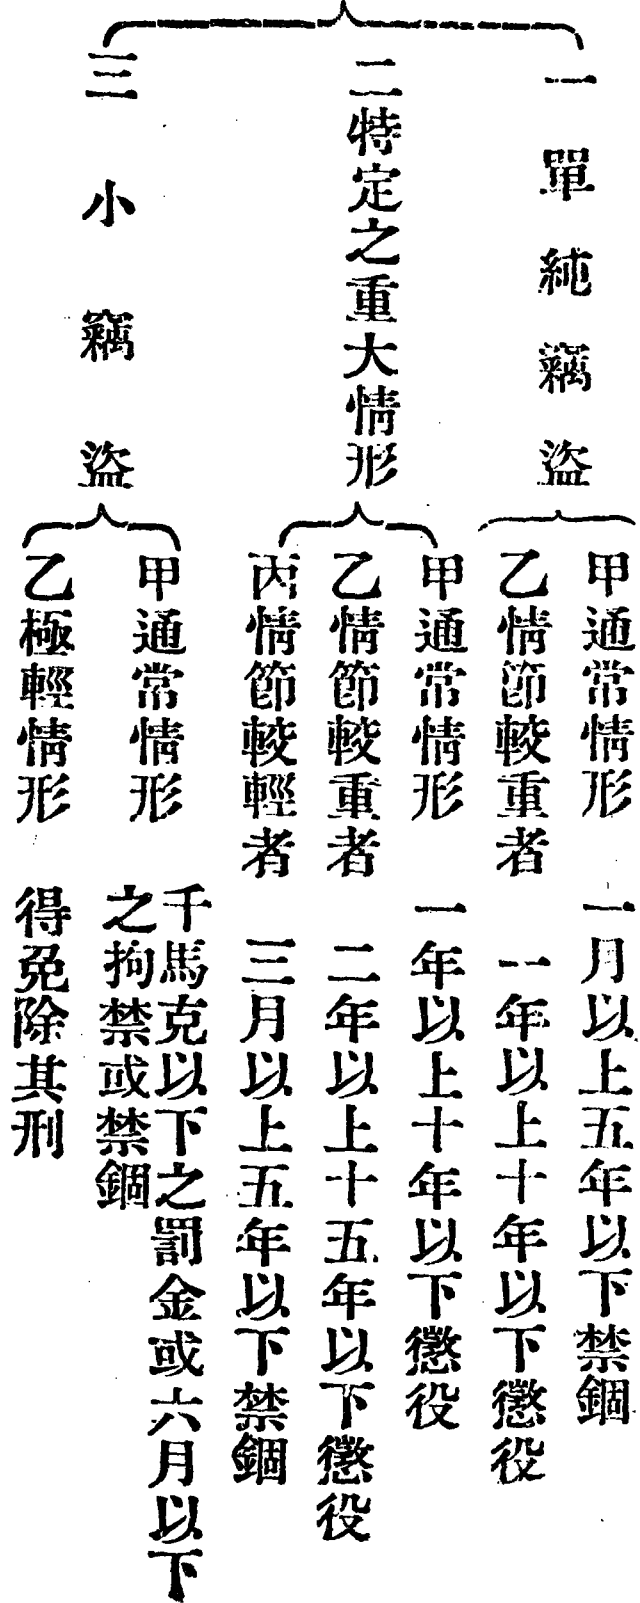 一單純竊盜
甲通常情形 一月以上五年以下禁錮
乙情節較重者 一年以上十年以下懲役
二特定之重大情形
甲通常情形 一年以上十年以下懲役
乙情節較重者 二年以上十五年以下懲役
丙情節較輕者 三月以上五年以下禁錮
三小竊盜
甲通常情形 千馬克以下之罰金或六月以下
之拘禁或禁錮
乙極輕情形 得免除其刑